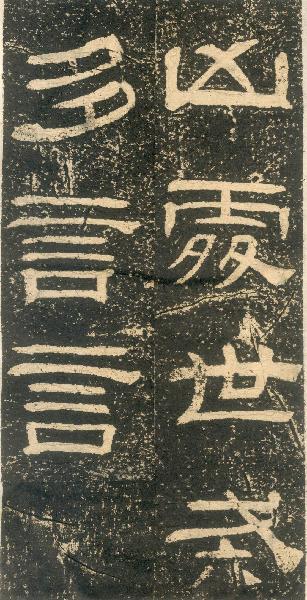 凶處世戒
多言言